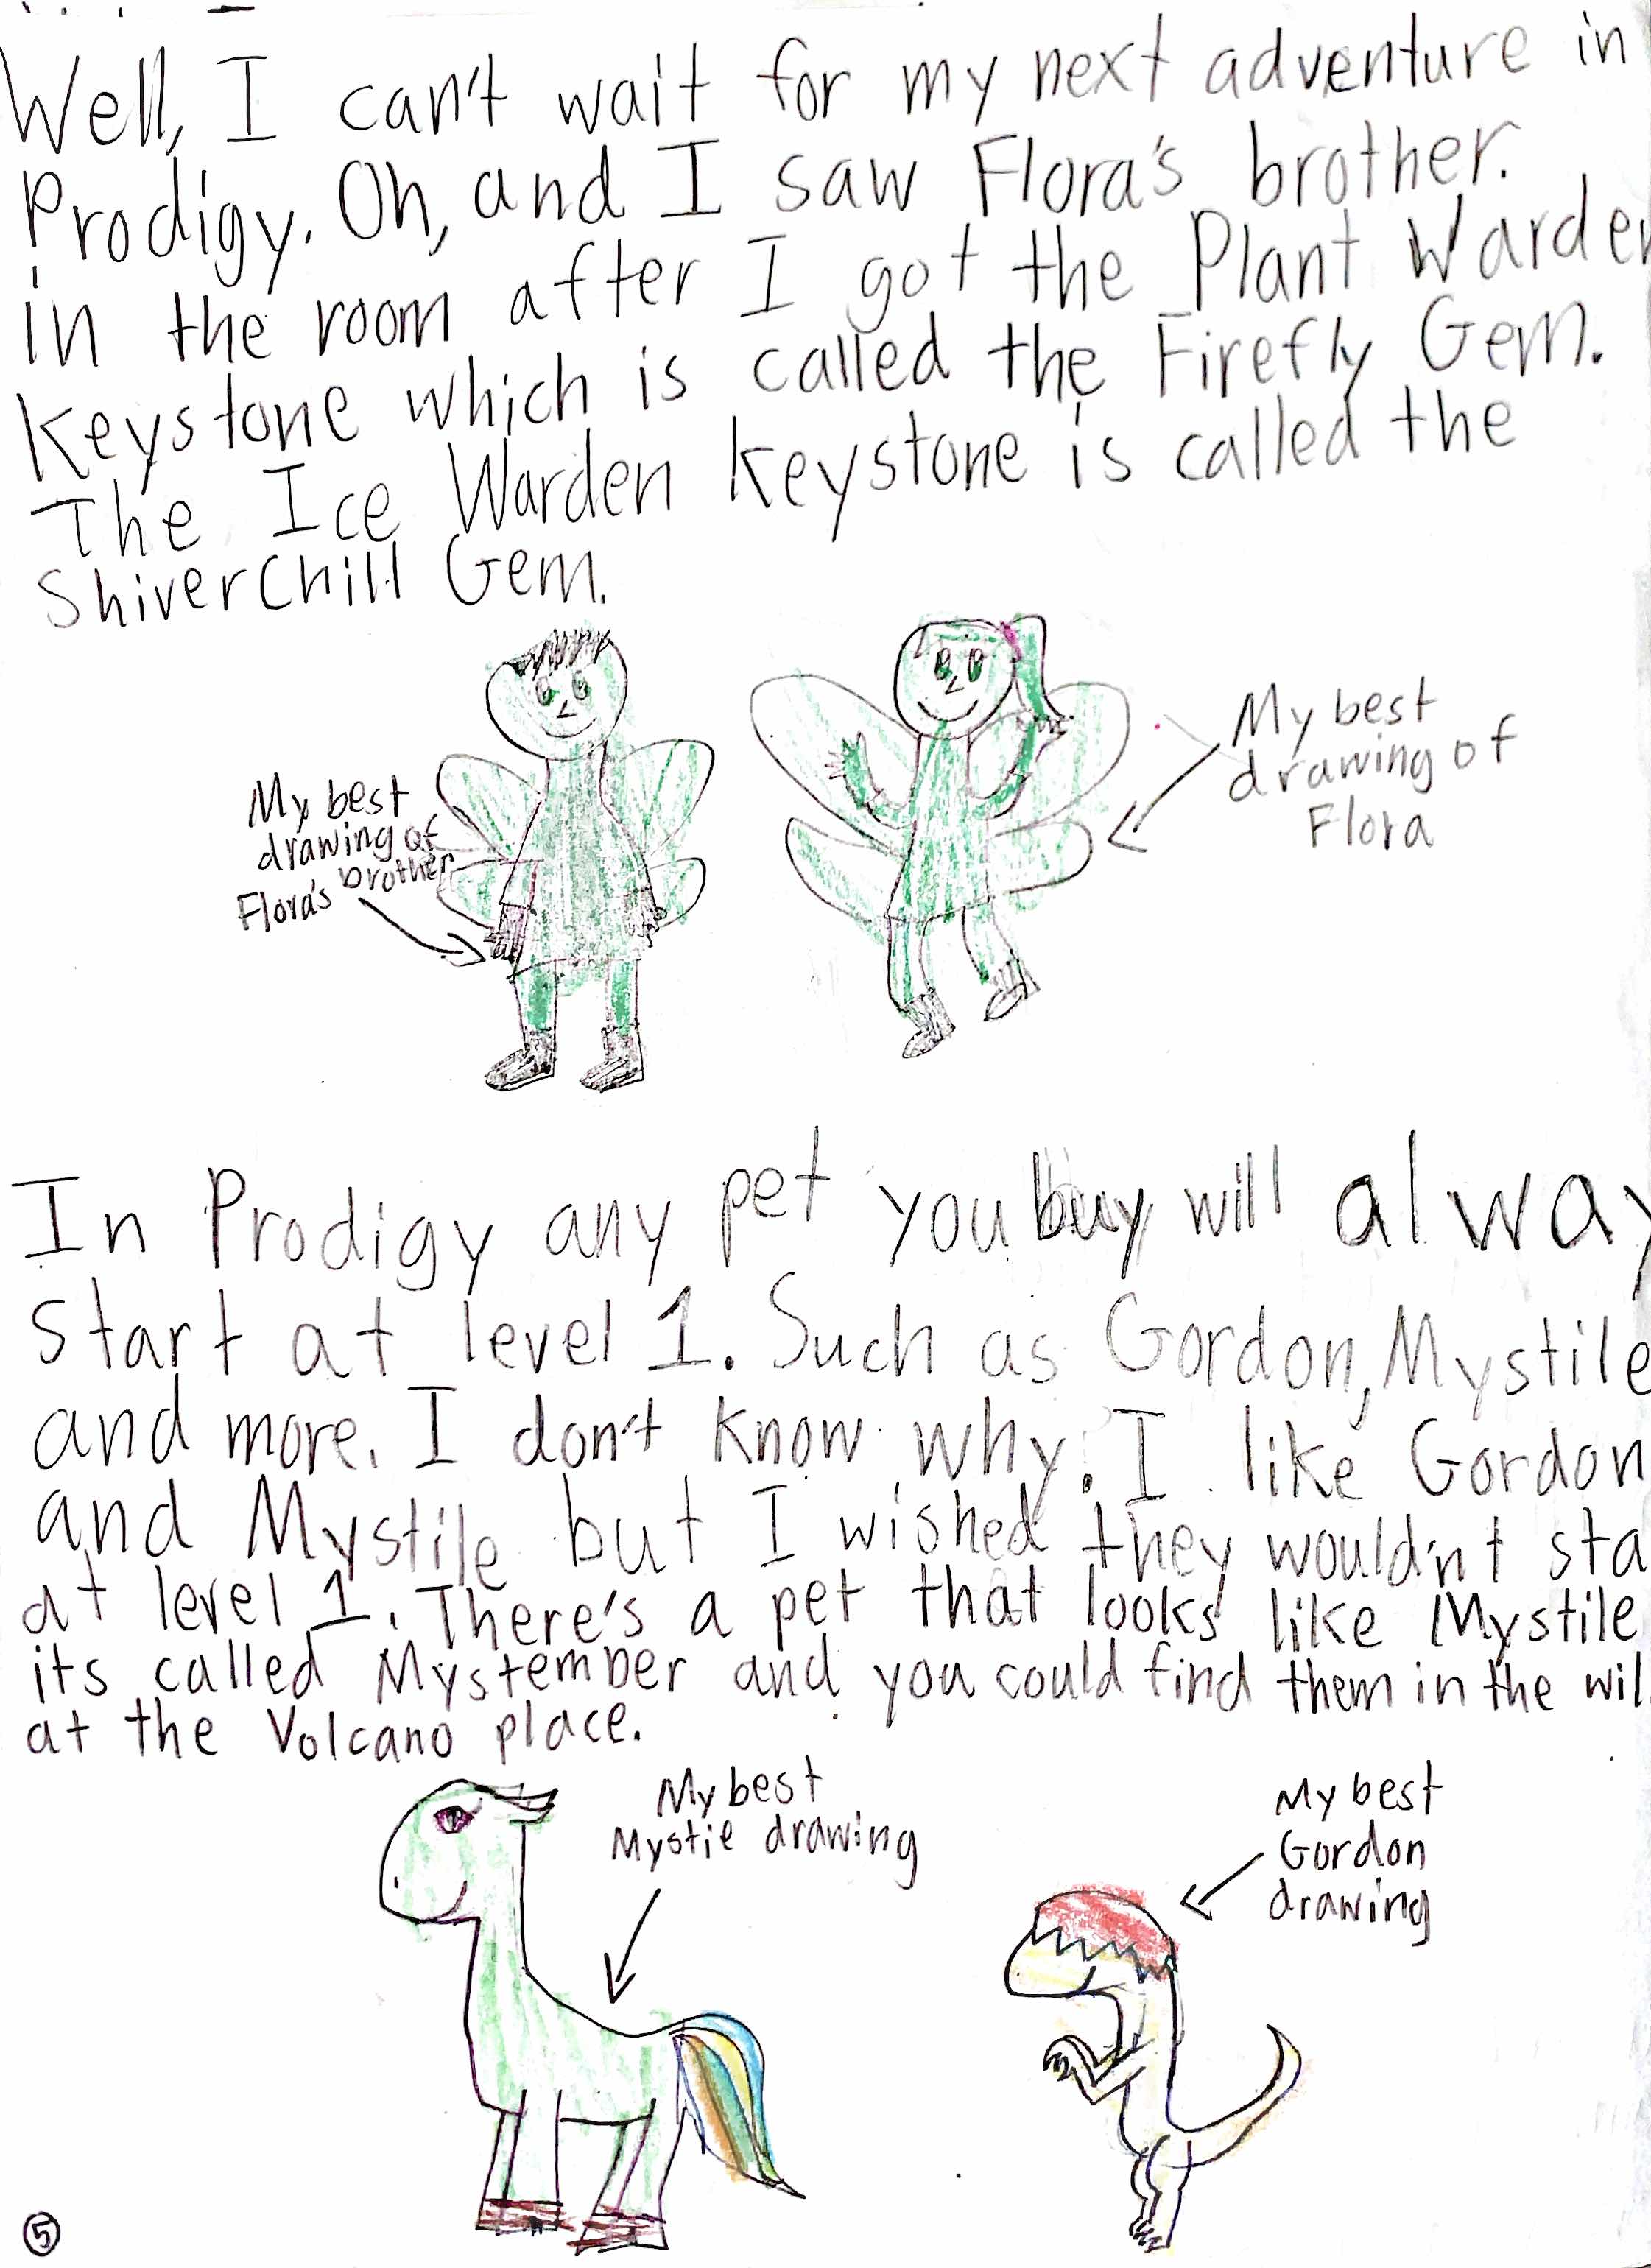 Well, I can't wait for my next adventure in
Prodigy. Oh, and I saw Flora's brother.
in the room after I got the Plant Warden
Keystone which is called the Firefly Gem.
The Ice Warden keystone is called the
ShiverChill Gem.
My best
drawing of
Flora's brother
My best
drawing of
Flora
In Prodigy any pet you buy will alway
Start at level 1. Such as Gordon, Mystile
and more. I don't know why. I like Gordon
and Mystile but I wished they wouldn't sta
at level 1. There's a pet that looks like Mystile
its called Mystember and you could find them in the wil
at the Volcano place.
My best
Mystie drawing
My best
Gordon
drawing
5